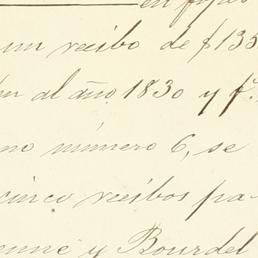 en fojas
un recibo de $135
al año 1830 y f.
no número 6, se
cinco recibos pa-
y Bourdel